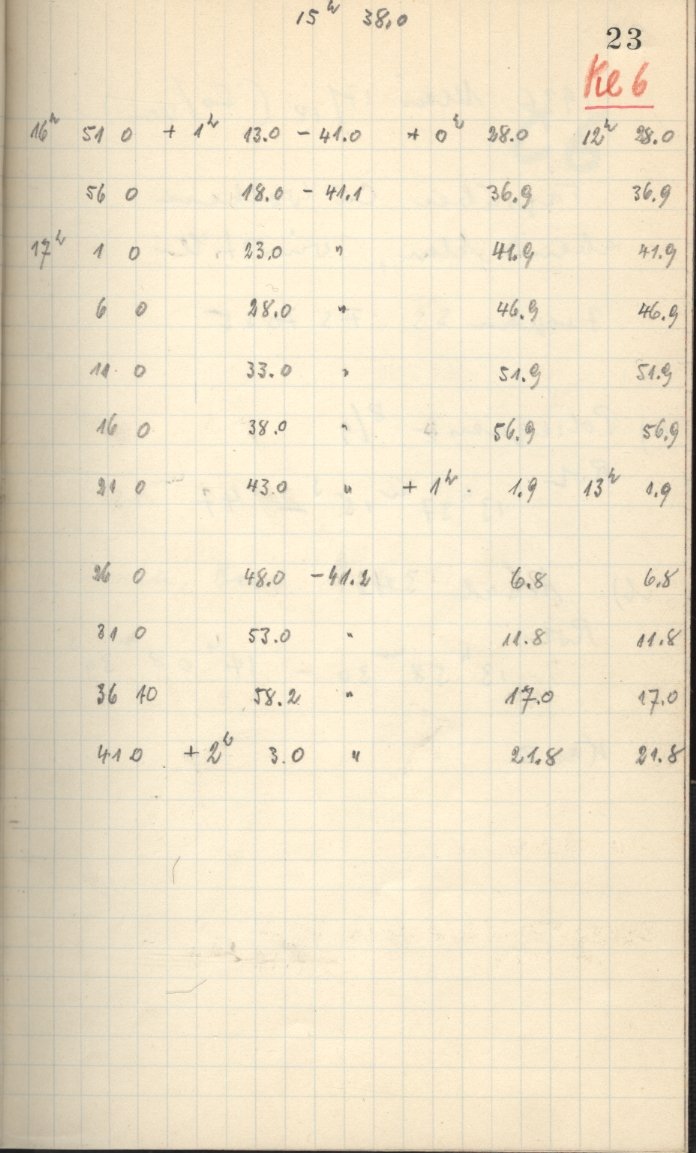 15ʰ 38,0
23
Ke 6
16ʰ 51 0 + 1ʰ 13.0 - 41.0 + 0ʰ 28.0 12ʰ 28.0
56 0 18.0 - 41.1 36.9 36.9
17ʰ 1 0 23.0 " 41.9 41.9
6 0 28.0 " 46.9 46.9
11 0 33.0 " 51.9 51.9
16 0 38.0 " 56.9 56.9
21 0 43.0 " + 1ʰ 1.9 13ʰ 1.9
26 0 48.0 - 41.2 6.8 6.8
31 0 53.0 " 11.8 11.8
36 10 58.2 " 17.0 17.0
41 0 + 2ʰ 3.0 " 21.8 21.8